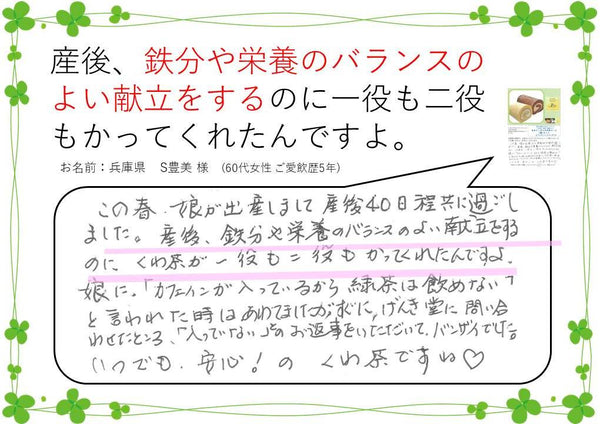 産後、鉄分や栄養のバランスの
よい献立をするのに一役も二役
もかってくれたんですよ。
お名前：兵庫県　S豊美 様　(60代女性 ご愛飲歴5年)
この春 娘が出産しまして 産後40日程共に過ごし
ました。産後、鉄分や栄養のバランスのよい献立をする
のに、くわ茶が一役も二役もかってくれたんですよ。
娘に、「カフェインが入っているから 緑茶は飲めない」
と言われた時はあわてましたがすぐに、げんき堂に問い合
わせたところ、「入っていない」とのお返事をいただいて、バンザイでした
いつでも 安心！の くわ茶ですね♡